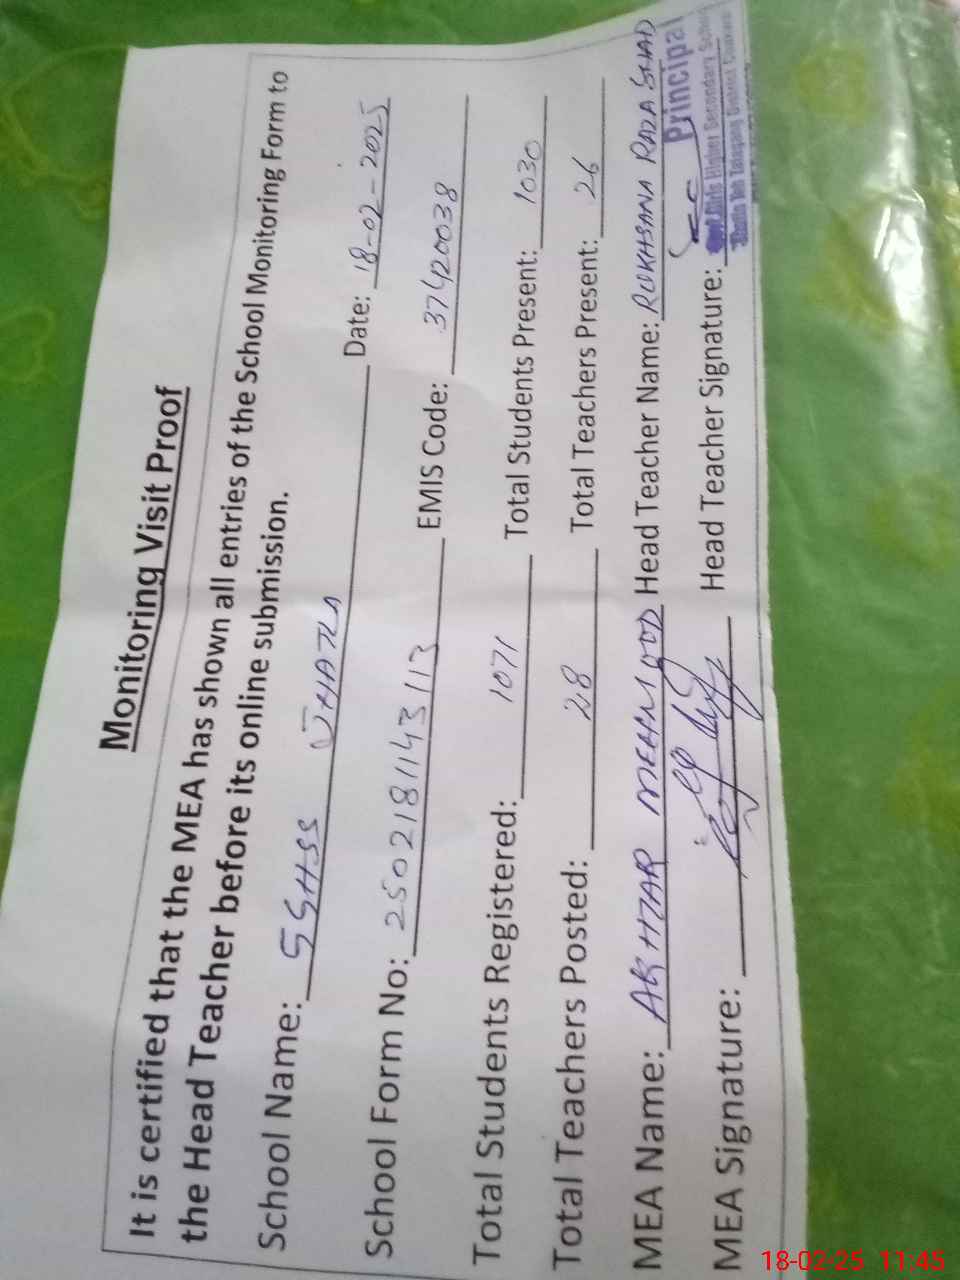 Monitoring Visit Proof
It is certified that the MEA has shown all entries of the School Monitoring Form to
the Head Teacher before its online submission.
School Name: GGHSS Date: 18-02-2025
School Form No: 2502181143113 EMIS Code: 37420038
Total Students Registered: 1071 Total Students Present: 1030
Total Teachers Posted: 28 Total Teachers Present: 26
MEA Name: AKHTAR MEHMOOD Head Teacher Name: RUKHSANA RAZA SHAD
MEA Signature: Head Teacher Signature:
Principal
Girls Higher Secondary School
Talagang District Chakwal
18-02-25 11:45